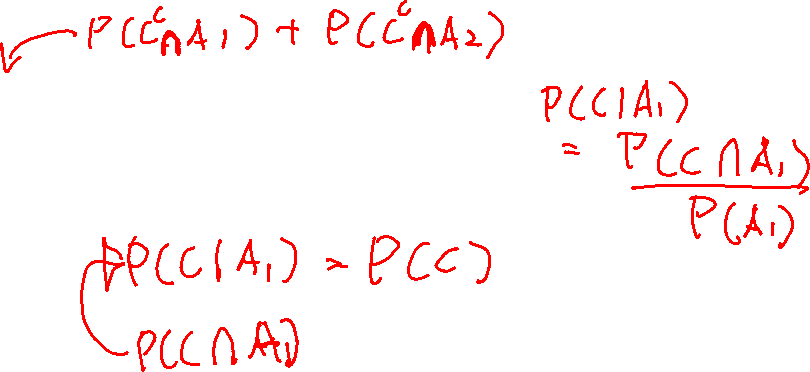 P(C^c∩A₁) + P(C^c∩A₂)
P(C|A₁)
= P(C∩A₁)
P(A₁)
P(C|A₁) = P(C)
P(C∩A₁)